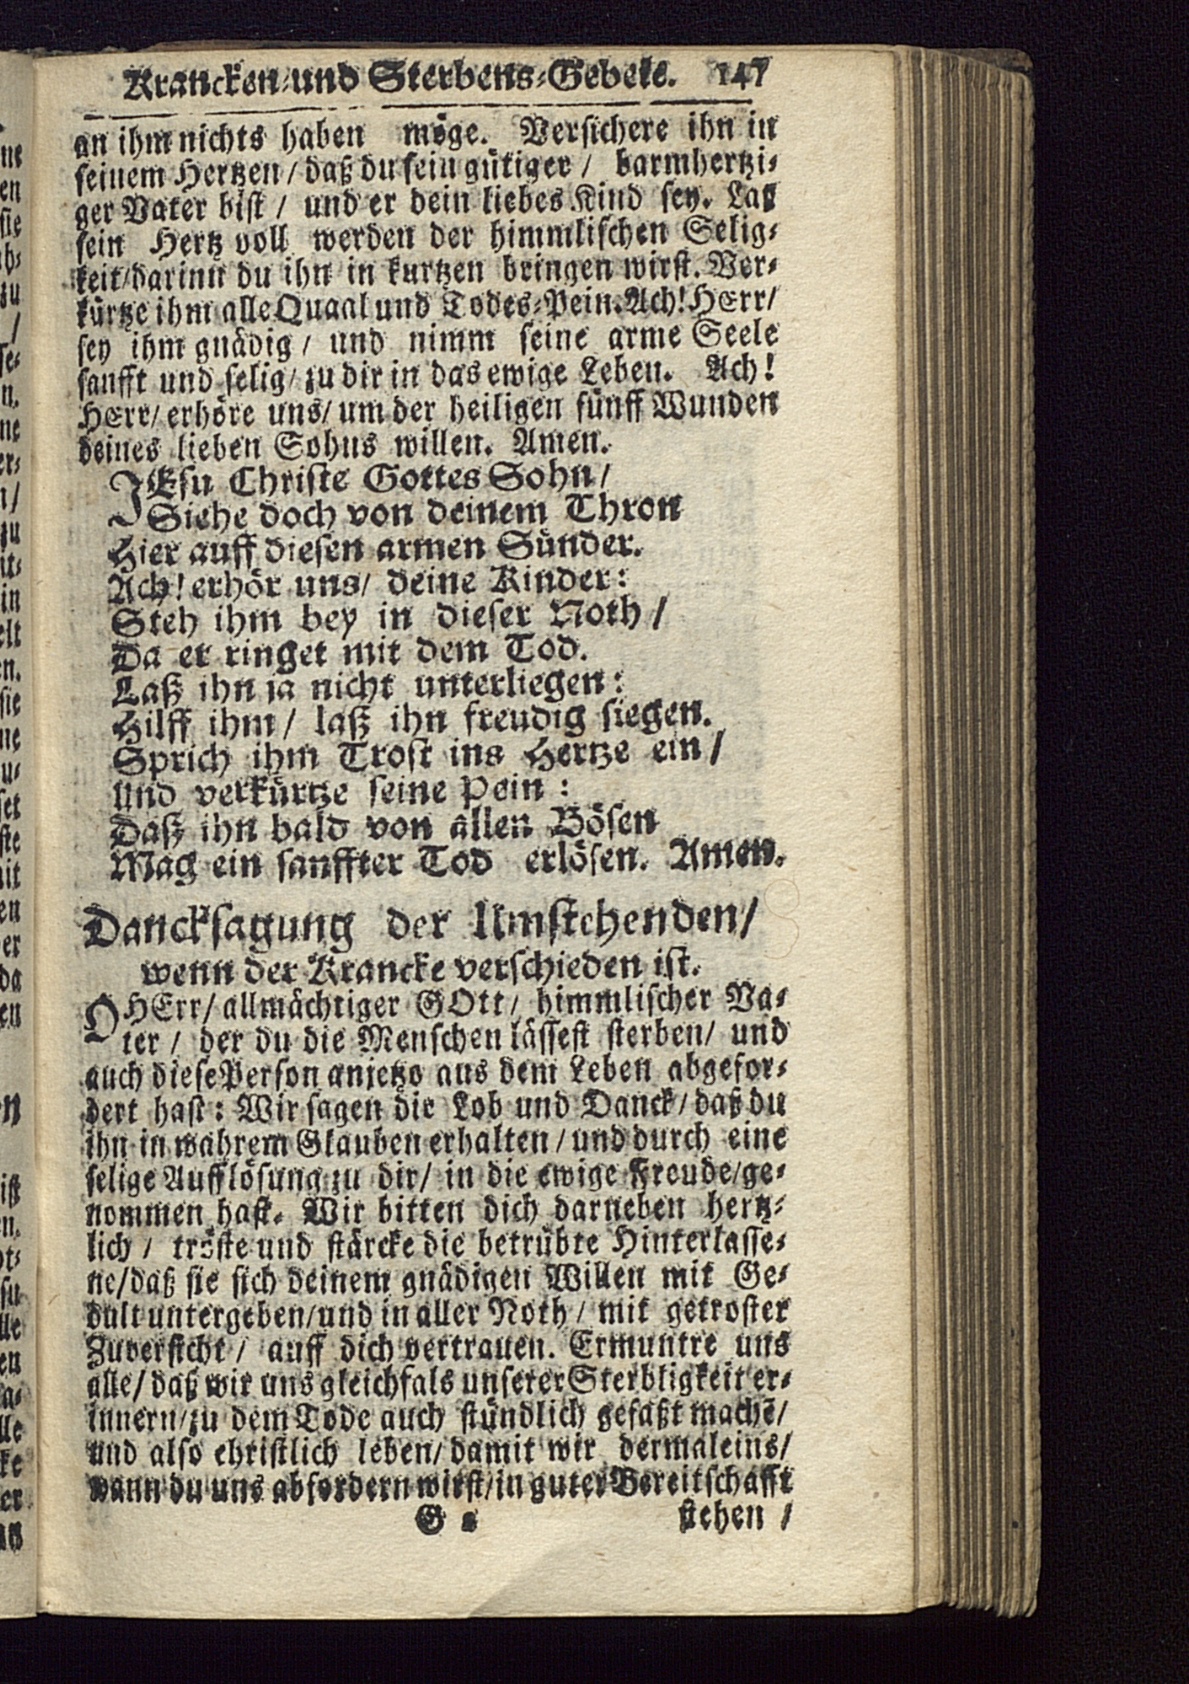 Krancken-und Sterbens-Gebete. 147
an ihm nichts haben möge. Versichere ihn in
seinem Hertzen / daß du sein gütiger / barmhertzi-
ger Vater bist / und er dein liebes Kind sey. Laß
sein Hertz voll werden der himmlischen Selig-
keit/darinn du ihn in kurtzen bringen wirst. Ver-
kürtze ihm alle Quaal und Todes-Pein. Ach! HErr/
sey ihm gnädig / und nimm seine arme Seele
sanfft und selig/ zu dir in das ewige Leben. Ach!
HErr/ erhöre uns/ um der heiligen fünff Wunden
deines lieben Sohns willen. Amen.
JEsu Christe Gottes Sohn /
Siehe doch von deinem Thron
Hier auff diesen armen Sünder.
Ach! erhör uns/ deine Kinder:
Steh ihm bey in dieser Noth /
Da er ringet mit dem Tod.
Laß ihn ja nicht unterliegen:
Hilff ihm / laß ihn freudig siegen.
Sprich ihm Trost ins Hertze ein /
Und verkürtze seine Pein :
Daß ihn bald von allen Bösen
Mag ein sanffter Tod erlösen. Amen.
Dancksagung der Umstehenden/
wenn der Krancke verschieden ist.
O HErr/ allmächtiger GOtt/ himmlischer Va-
ter / der du die Menschen lässest sterben/ und
auch diese Person anjetzo aus dem Leben abgefor-
dert hast: Wir sagen dir Lob und Danck/ daß du
ihn in wahrem Glauben erhalten / und durch eine
selige Aufflösung zu dir/ in die ewige Freude/ge-
nommen hast. Wir bitten dich darneben hertz-
lich / tröste und stärcke die betrübte Hinterlasse-
ne/daß sie sich deinem gnädigen Willen mit Ge-
dult untergeben/und in aller Noth / mit getroster
Zuversicht / auff dich vertrauen. Ermuntre uns
alle/ daß wir uns gleichfals unserer Sterbligkeit er-
innern/zu dem Tode auch stündlich gefaßt machē/
und also christlich leben/ damit wir dermaleins/
wann du uns abfordern wirst/in guter Bereitschafft
G 2 stehen /